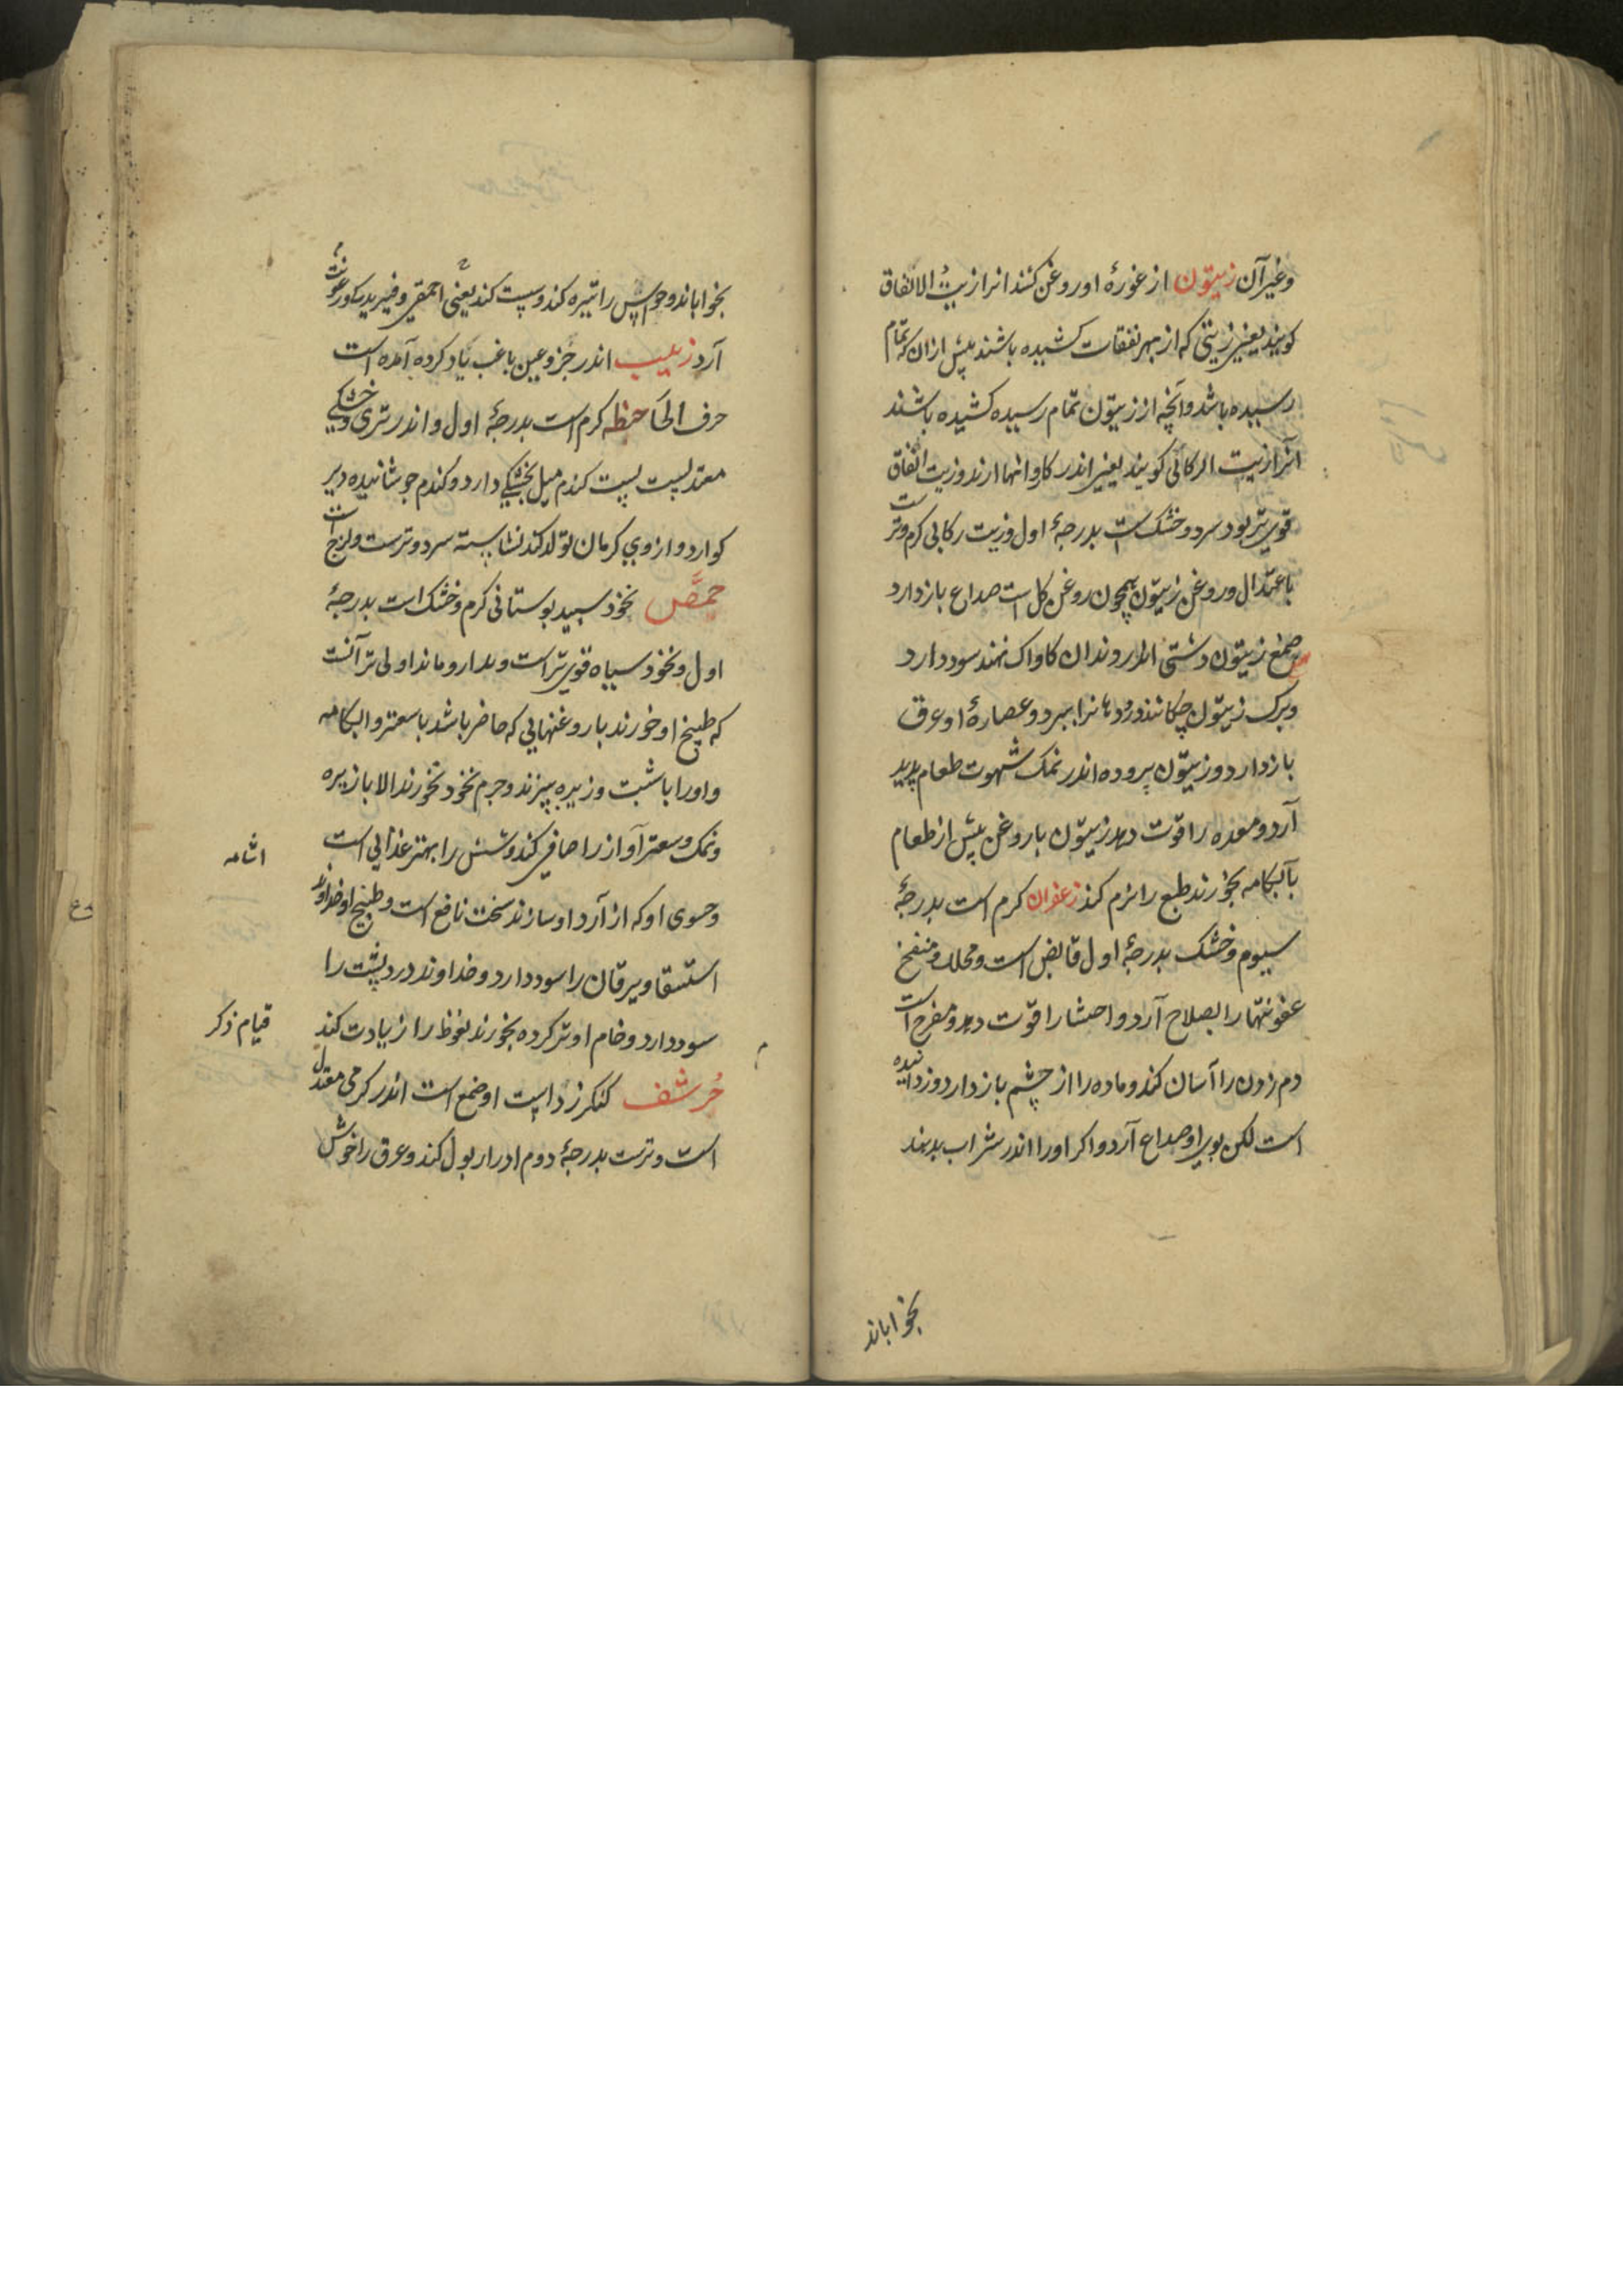 وغیرآن زیتون از غورهٔ او روغن کنند انرا زیت الانفاق
کویند یعنی زیتی که از بهر نفقات کشیده باشند پیش ازان که تمام
رسیده باشد وآنچه از زیتون تمام رسیده کشیده باشند
آنرا زیت الرکابی کویند یعنی اندر کاروانها ارند وزیت انفاق
قوی تر بود سرد وخشک است بدرجهٔ اول وزیت رکابی کرم وتر است
باعتدال وروغن زیتون همچون روغن کل است صداع بازدارد
صمغ زیتون دشتی اندر دندان کاواک نهند سود دارد
وبرک زیتون چکانند درد دهانرا ببرد وعصارهٔ او عرق
بازدارد وزیتون پرورده اندر نمک شهوت طعام پدید
آرد ومعده را قوت دهد زیتون باروغن پیش از طعام
بآبکامه بخورند طبع را نرم کند زعفران کرم است بدرجهٔ
سیوم وخشک بدرجهٔ اول قابض است ومحلل ومنضج
عفونتها را بصلاح آرد واحشا را قوت دهد ومفرح است
دم زدن را آسان کند وماده را از چشم بازدارد وزداینده
است لکن بوی او صداع آرد واکر اورا اندر شراب بدهند
بخواباند
بخواباند وحواس را تیره کند وسپت کند یعنی احمقی وفیریدکی ورعونت
آرد زبیب اندر جزو عین باعنب یاد کرده آمده است
حرف الحا حنطه کرم است بدرجهٔ اول واندر تری وخشکی
معتدلست پست کندم میل بخشکی دارد وکندم جوشانیده دیر
کوارد وازوی کرمان تولد کند نشاسته سرد وترست ولزج است
حمص نخود سپید بوستانی کرم وخشک است بدرجهٔ
اول ونخود سیاه قوی تر است وبدارو ماند اولی تر آنست
که طبیخ او خورند با روغنهایی که حاضر باشد باسعتر وابکامه
واورا باشبت وزیره بپزند وجرم نخود نخورند الا بازیره
ونمک وسعتر آواز را صافی کند وشش را بهتر غذایی است
وحسوی او که از آرد او سازند سخت نافع است وطبیخ او خداوند
استسقا ویرقان را سود دارد وخداوند درد پشت را
سود دارد وخام او تر کرده بخورند نعوظ را زیادت کند
حرشف کنکرزد است او صمغ است اندر کرمی معتدل
است وترست بدرجهٔ دوم ادرار بول کند وعرق را خوش
اشامه
قیام ذکر